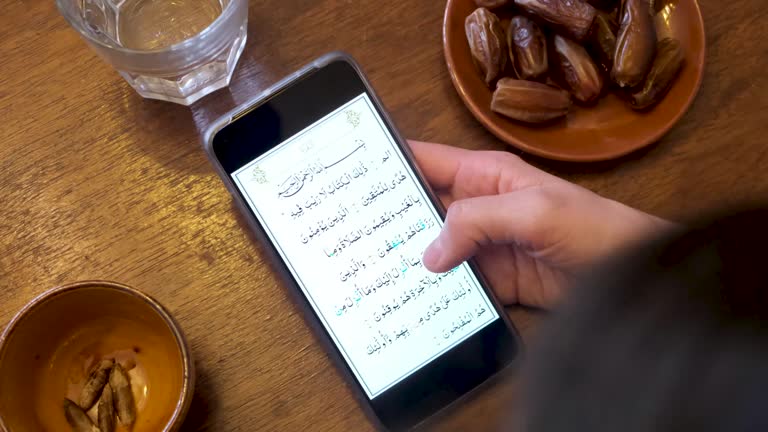 بسم الله الرحمن الرحيم
الم ۝ ذَٰلِكَ الْكِتَابُ لَا رَيْبَ فِيهِ
هُدًى لِّلْمُتَّقِينَ ۝ الَّذِينَ يُؤْمِنُونَ
بِالْغَيْبِ وَيُقِيمُونَ الصَّلَاةَ وَمِمَّا
رَزَقْنَاهُمْ يُنفِقُونَ ۝ وَالَّذِينَ
بِمَا أُنزِلَ إِلَيْكَ وَمَا أُنزِلَ مِن
وَبِالْآخِرَةِ هُمْ يُوقِنُونَ ۝
أُولَٰئِكَ عَلَىٰ هُدًى مِّن رَّبِّهِمْ وَأُولَٰئِكَ
هُمُ الْمُفْلِحُونَ ۝